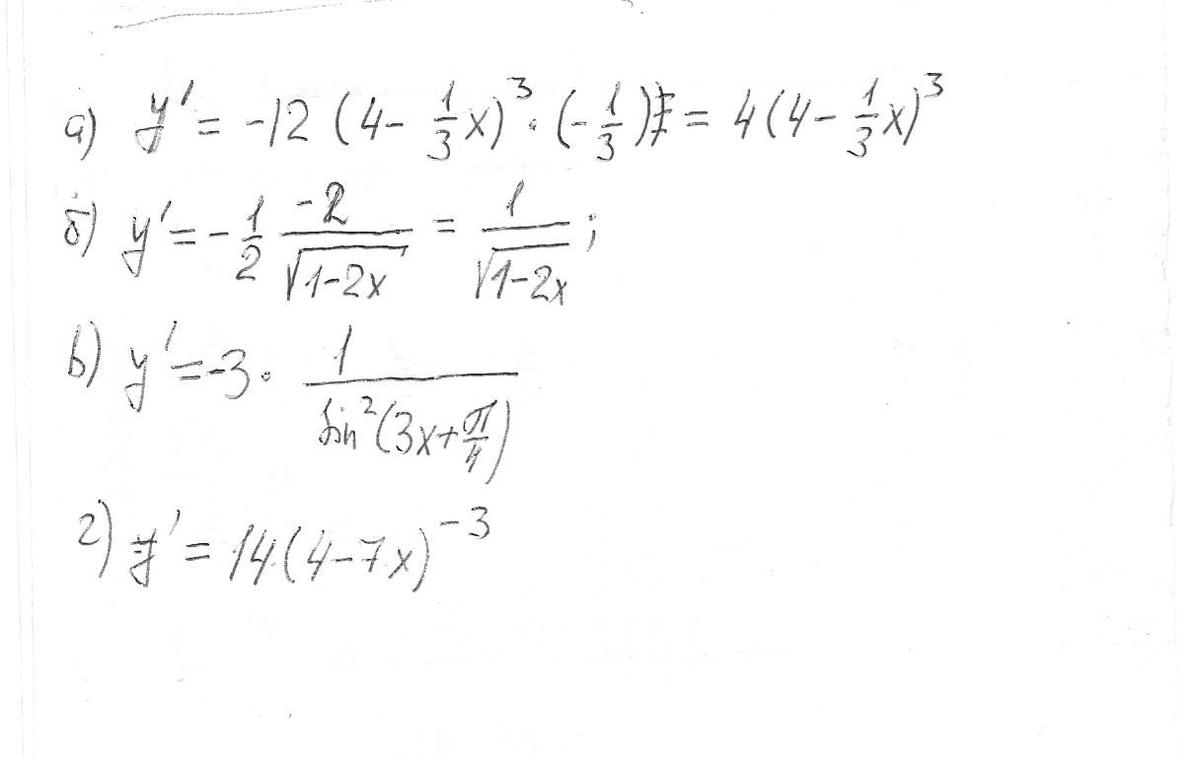 а) y' = -12 (4 - 1/3 x)³ · (-1/3) = 4(4 - 1/3 x)³
б) y' = - 1/2 -2/√(1-2x) = 1/√(1-2x) ;
в) y' = -3 · 1/sin²(3x + π/4)
г) y' = 14(4-7x)⁻³